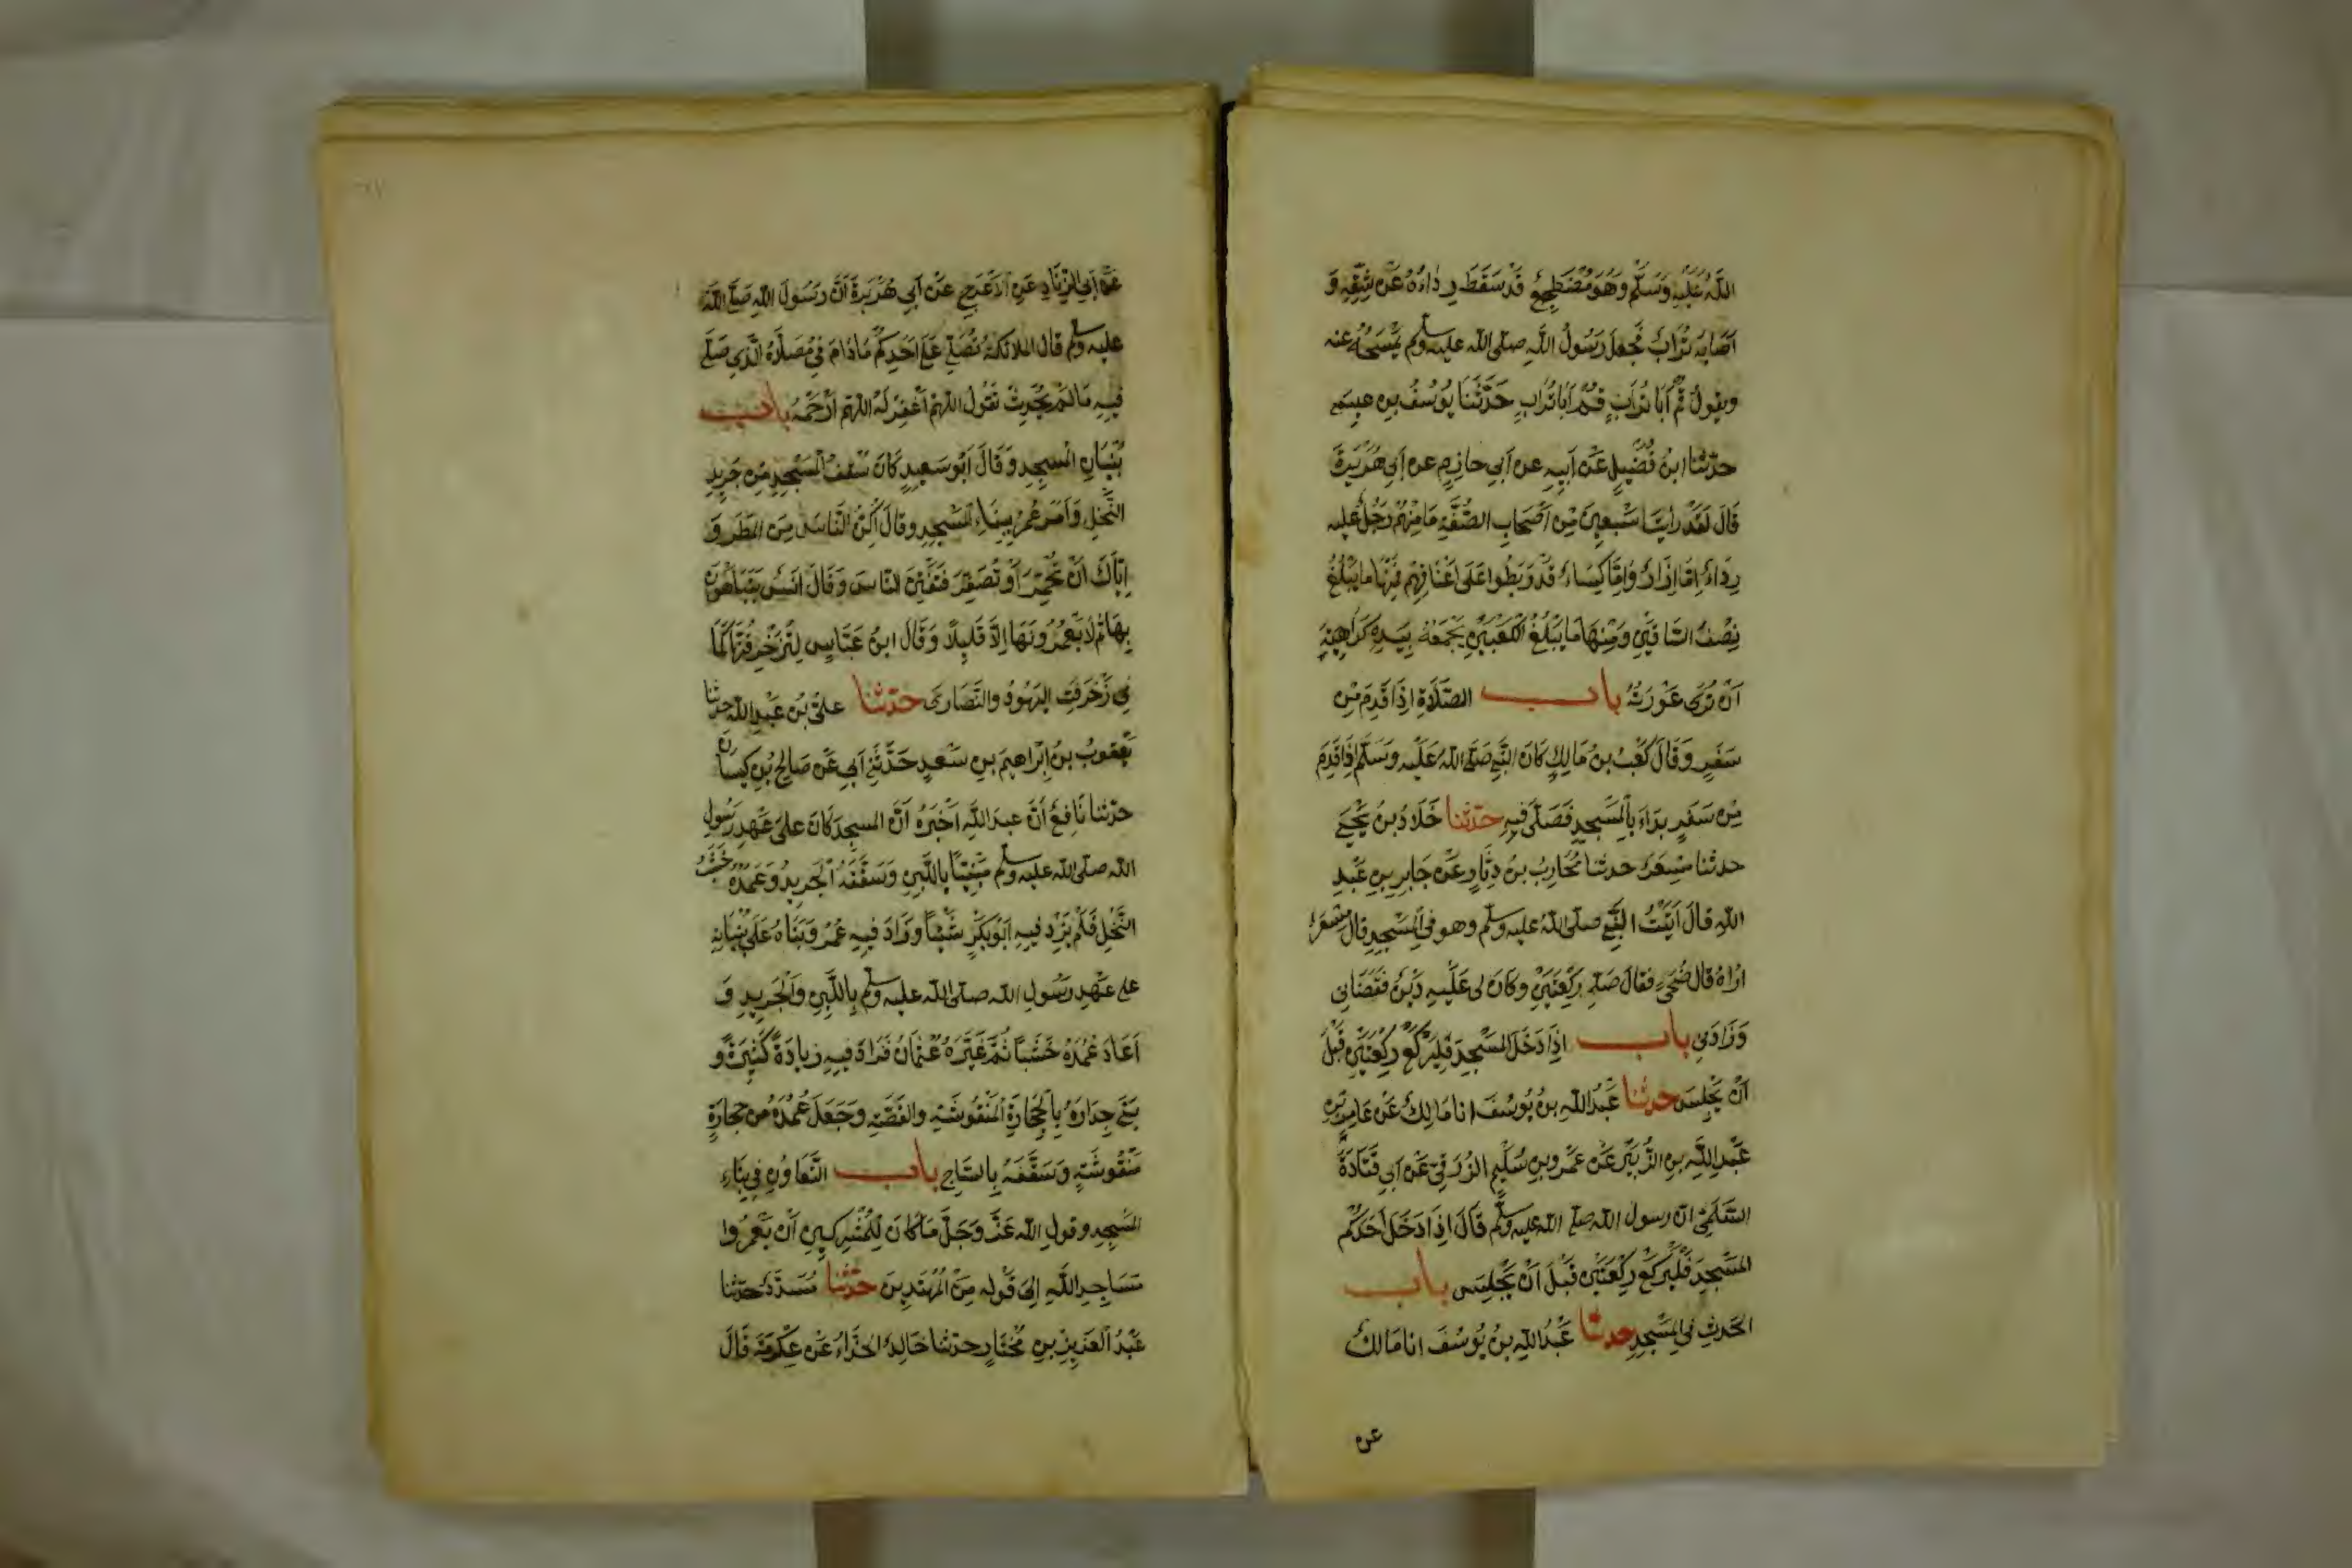 اللَّهُ عَلَيْهِ وَسَلَّمَ وَهُوَ مُضْطَجِعٌ قَدْ سَقَطَ رِدَاؤُهُ عَنْ شِقِّهِ وَ
اَصَابَهُ تُرَابٌ فَجَعَلَ رَسُولُ اللَّهِ صلى الله عليه وسلم يَمْسَحُهُ عنه
ويقولُ قُمْ اَبَا تُرَابٍ قُمْ اَبَا تُرَابٍ حَدَّثَنَا يُوسُفُ بن عيسى
حدّثنا ابنُ فُضَيلٍ عَنْ اَبِيهِ عن اَبي حازِمٍ عن اَبي هُرَيْرَةَ
قَالَ لَقَدْ رَاَيْتُ سَبْعِينَ مِنْ اَصْحَابِ الصُّفَّةِ مَا مِنْهُمْ رَجُلٌ عليه
رِدَاءٌ اِمَّا اِزَارٌ وَاِمَّا كِسَاءٌ قَدْ رَبَطُوا عَلَى اَعْنَاقِهِمْ فَمِنْهَا ما يَبْلُغُ
نِصْفَ السَّاقَيْنِ وَمِنْهَا مَا يَبْلُغُ الْكَعْبَيْنِ فَيَجْمَعُهُ بِيَدِهِ كَرَاهِيَةَ
اَنْ تُرَى عَوْرَتُهُ باب الصَّلَاةِ اِذَا قَدِمَ مِنْ
سَفَرٍ وَقَالَ كَعْبُ بنُ مَالِكٍ كَانَ النَّبِيُّ صَلَّى اللهُ عَلَيْهِ وَسَلَّمَ اِذَا قَدِمَ
مِنْ سَفَرٍ بَدَاَ بِالْمَسْجِدِ فَصَلَّى فِيهِ حدّثنا خَلَّادُ بنُ يَحْيَى
حدثنا مِسْعَرٌ حدثنا مُحَارِبُ بنُ دِثَارٍ عَنْ جَابِرِ بنِ عَبْدِ
اللهِ قَالَ اَتَيْتُ النَّبِيَّ صلى اللهُ عليه وسلم وهو في الْمَسْجِدِ قال مِسْعَرٌ
اُرَاهُ قال ضُحًى فقال صَلِّ رَكْعَتَيْنِ وكَانَ لى عَلَيْهِ دَيْنٌ فَقَضَانِى
وَزَادَنِى باب اِذَا دَخَلَ الْمَسْجِدَ فَلْيَرْكَعْ رَكْعَتَيْنِ قَبْلَ
اَنْ يَجْلِسَ حدثنا عَبْدُ اللَّهِ بنُ يُوسُفَ انا مَالِكٌ عَنْ عَامِرِ بْنِ
عَبْدِ اللَّهِ بنِ الزُّبَيْرِ عَنْ عَمْرِو بنِ سُلَيْمٍ الزُّرَقِيّ عَنْ اَبِي قَتَادَةَ
السَّلَمِيّ انّ رسول الله صلى الله عليه وسلم قَالَ اِذَا دَخَلَ اَحَدُكُمْ
الْمَسْجِدَ فَلْيَرْكَعْ رَكْعَتَيْنِ قَبْلَ اَنْ يَجْلِسَ باب
الحَدَثِ فِي الْمَسْجِدِ حدثنا عَبْدُ اللَّهِ بنُ يُوسُفَ انا مَالِكٌ
عن
عَنْ اَبِي الزِّنَادِ عَنِ الْاَعْرَجِ عَنْ اَبِي هُرَيْرَةَ اَنَّ رَسُولَ اللهِ صَلَّى اللهُ
عليه وسلم قال الملائكةُ تُصَلِّي عَلَى اَحَدِكُمْ مَا دَامَ فِي مُصَلَّاهُ الَّذِي صَلَّى
فِيهِ مَا لَمْ يُحْدِثْ تَقُولُ اللهُمَّ اغْفِرْ لَهُ اللهُمَّ ارْحَمْهُ باب
بُنْيَانِ الْمَسْجِدِ وَقَالَ اَبُو سَعِيدٍ كَانَ سَقْفُ الْمَسْجِدِ مِنْ جَرِيدِ
النَّخْلِ وَاَمَرَ عُمَرُ بِبِنَاءِ الْمَسْجِدِ وقَالَ اَكِنَّ النَّاسَ مِنَ المَطَرِ وَ
اِيَّاكَ اَنْ تُحَمِّرَ اَوْ تُصَفِّرَ فَتَفْتِنَ النَّاسَ وَقَالَ اَنَسٌ يَتَبَاهَوْنَ
بِهَا ثُمَّ لَا يَعْمُرُونَهَا اِلَّا قَلِيلًا وَقَالَ ابنُ عَبَّاسٍ لَتُزَخْرِفُنَّهَا كَمَا
زَخْرَفَتِ الْيَهُودُ والنَّصَارَى حدّثنا علىّ بنُ عَبْدِ اللهِ حدثنا
يَعْقُوبُ بنُ اِبْرَاهِيمَ بنِ سَعْدٍ حَدَّثَنِي اَبِي عَنْ صَالِحِ بْنِ كَيْسَانَ
حدّثنا نَافِعٌ اَنَّ عبدَ اللَّهِ اَخْبَرَهُ اَنَّ المسجِدَ كَانَ عَلَى عَهْدِ رَسُولِ
الله صلى الله عليه وسلم مَبْنِيًّا بِاللَّبِنِ وَسَقْفُهُ الْجَرِيدُ وَعُمُدُهُ خَشَبُ
النَّخْلِ فَلَمْ يَزِدْ فِيهِ اَبُو بَكْرٍ شَيْئًا وزَادَ فِيهِ عُمَرُ وَبَنَاهُ عَلَى بُنْيَانِهِ
على عَهْدِ رَسُولِ الله صلى الله عليه وسلم بِاللَّبِنِ وَالْجَرِيدِ وَ
اَعَادَ عُمُدَهُ خَشَبًا ثُمَّ غَيَّرَهُ عُثْمَانُ فَزَادَ فِيهِ زِيَادَةً كَثِيرَةً وَ
بَنَى جِدَارَهُ بِالْحِجَارَةِ الْمَنْقُوشَةِ والقَصَّةِ وَجَعَلَ عُمُدَهُ مِنْ حِجَارَةٍ
مَنْقُوشَةٍ وَسَقَّفَهُ بِالسَّاجِ باب التَّعَاوُنِ فِي بِنَاءِ
المَسْجِدِ وقولِ الله عَزَّ وَجَلَّ مَا كَانَ لِلْمُشْرِكِينَ اَنْ يَعْمُرُوا
مَسَاجِدَ اللَّهِ اِلَى قَوْلِهِ مِنَ الْمُهْتَدِينَ حدّثنا مُسَدَّدٌ حدّثنا
عَبْدُ الْعَزِيزِ بنِ مُخْتَارٍ حدثنا خَالِدٌ الحَذَّاءُ عَنْ عِكْرِمَةَ قَالَ